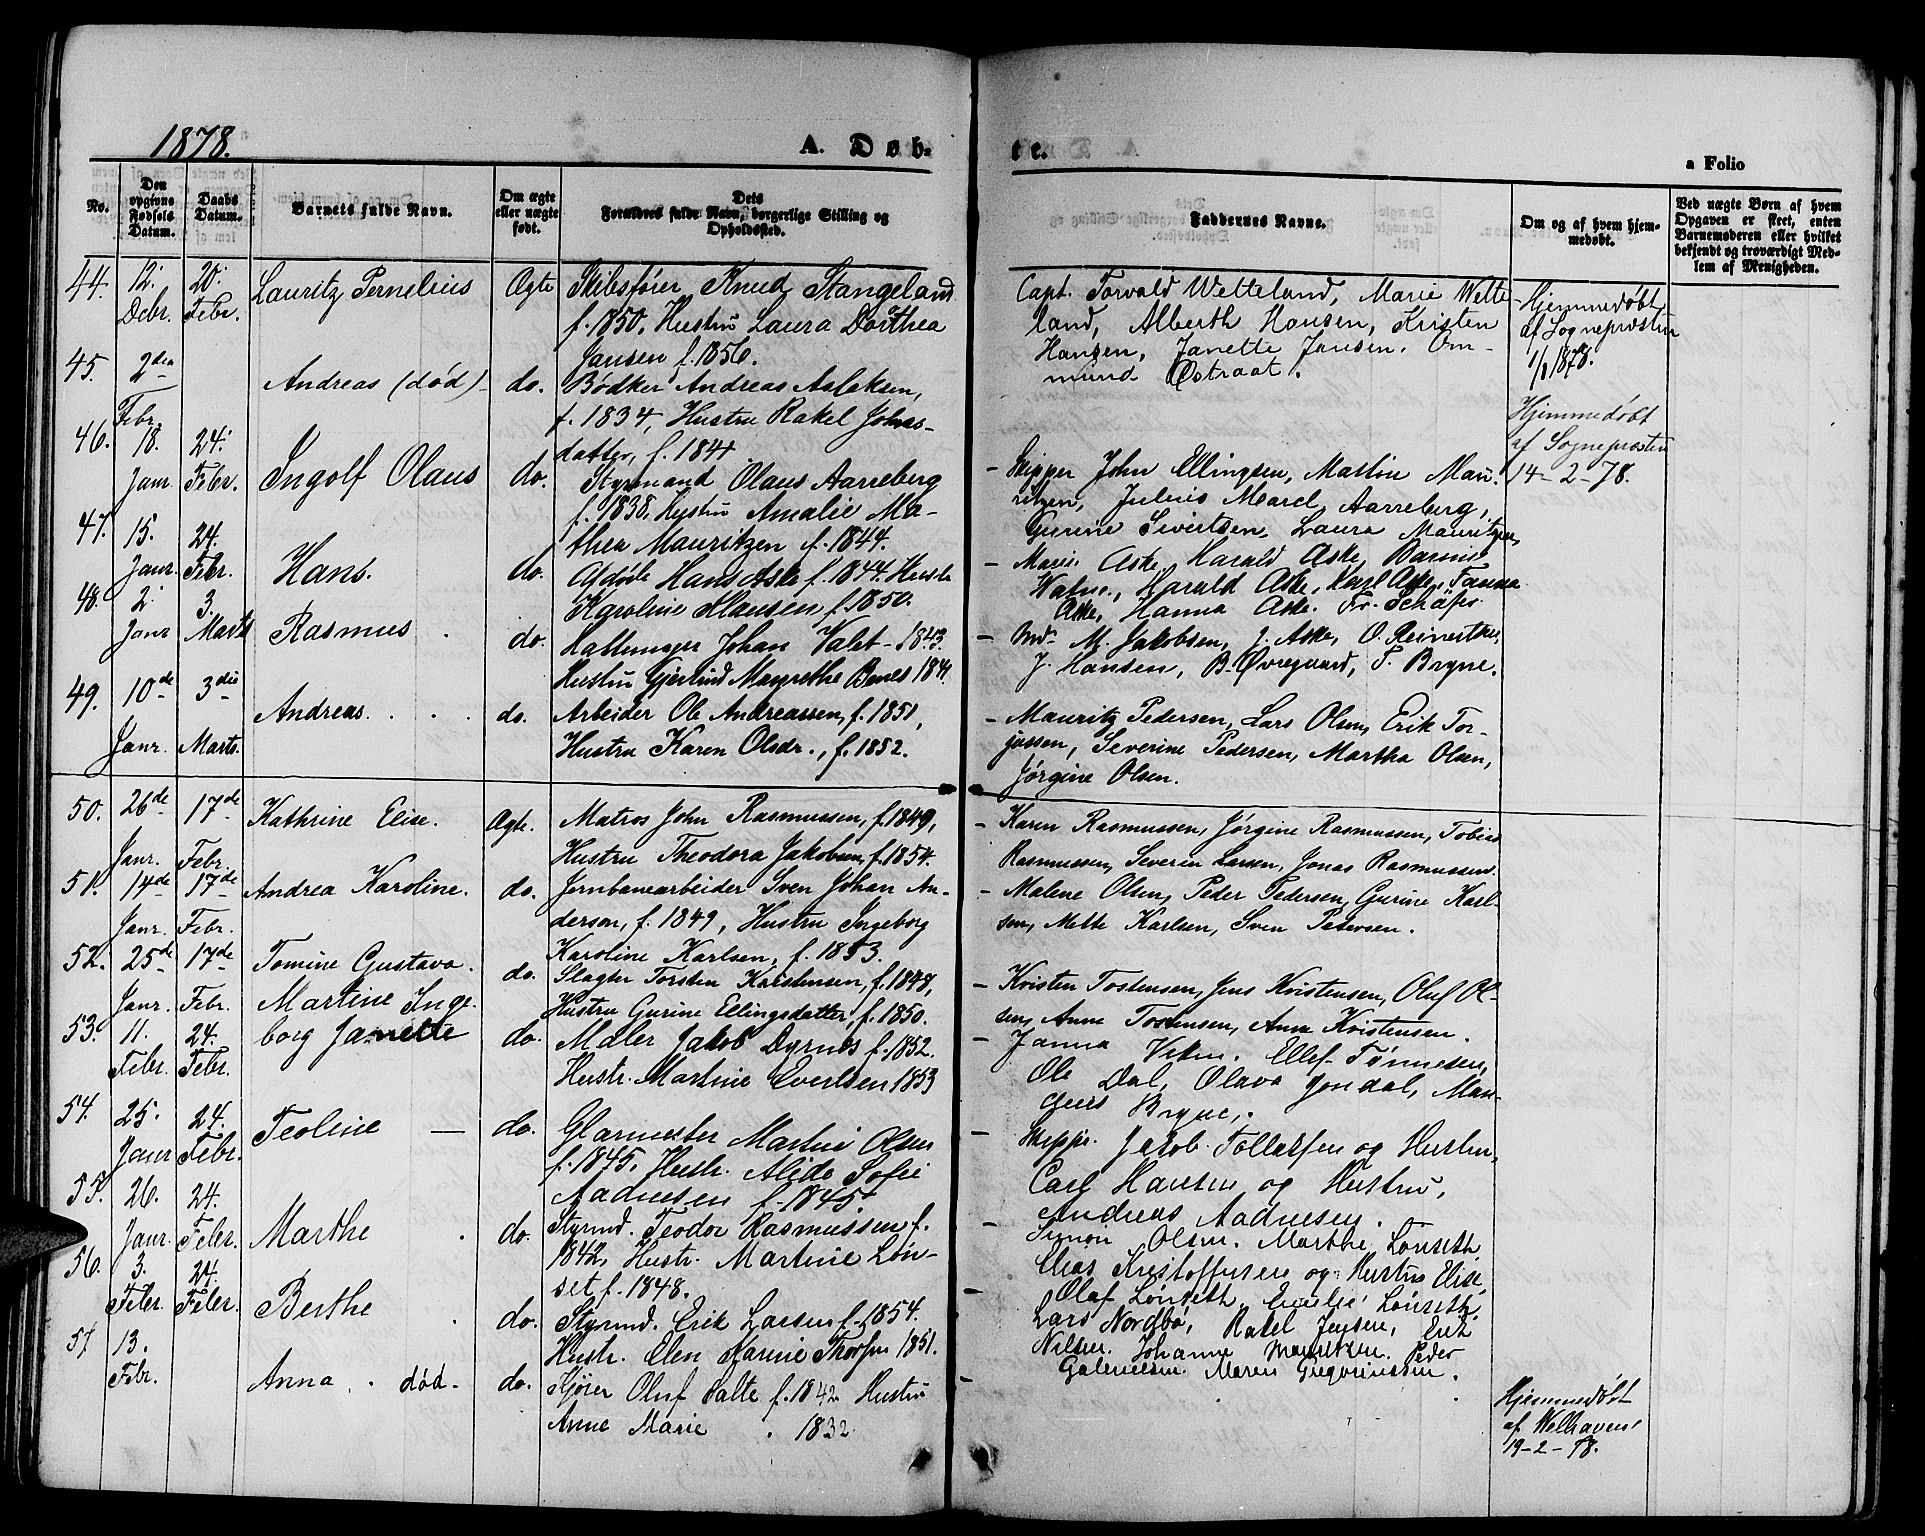 1878.
A. Døb-
te.
a Folio
No.
Den opgivne Fødsels Datum.
Daabs Datum.
Barnets fulde Navn.
Om ægte eller uægte født.
Dets Forældres fulde Navn, borgerlige Stilling og Opholdssted.
Faddernes Navne.
Om og af hvem hjemmedøbt.
Ved uægte Børn af hvem Opgaven er skeet, enten Barnemoderen eller hvilket bekjendt og troværdigt Medlem af Menigheden.
44. 12. Debr. 20. Febr. Lauritz Pernelius Ægte
Skibsfører Knud Stangeland
f. 1850, Hustru Laura Dorthea
Jansen f. 1856.
Capt. Torvald Wetteland, Marie Wette-
land, Alberth Hansen, Kristen
Hansen, Janette Jansen, Om-
mund Østraat.
Hjemmedøbt
af Sognepresten
1/1 1878.
45. 2den Febr. Andreas (død) do.
Bødker Andreas Aslaksen,
f. 1834, Hustru Rakel Johns-
datter, f. 1841
Hjemmedøbt
af Sognepresten
14-2-78.
46. 18. Janr. 24. Febr. Ingolf Olaus do.
Styrmand Olaus Aarreberg
f. 1838, Hustru Amalie Ma-
thea Mauritzen f. 1844.
Skipper John Ellingsen, Martin Mau-
ritzen, Julius Marel Aarreberg,
Gurine Sivertsen, Laura Mauritzen,
47. 15. Janr. 24. Febr. Hans. do.
Afdøde Hans Aske f. 1844. Hustr
Karoline Hansen, f. 1850.
Marie Aske, Harald Aske, Rasmus
Watne, Harald Aske, Karl Aske, Fanna
Aske, Hanna Aske. Fr. Schäfer
48. 2. Janr 3. Marts Rasmus do.
Hattemager Johan Valet 1843.
Hustru Gjertrud Margrethe 1841.
M. Jakobsen, J. Aske, O. Reinertsen,
J. Hansen, B. Øvregaard, T. Bryne.
49. 10de Janr. 3die Marts. Andreas. do.
Arbeider Ole Andreassen, f. 1851,
Hustru Karen Olsdr., f. 1852.
Mauritz Pedersen, Lars Olsen, Erik Tor-
jussen, Severine Pedersen, Martha Olsen,
Jørgine Olsen.
50. 26de Janr. 17de Febr. Kathrine Elise. Ægte.
Matros John Rasmussen, f. 1849,
Hustru Theodora Jakobsen, f. 1854.
Karen Rasmussen, Jørgine Rasmussen, Tobias
Rasmussen, Severin Larsen, Jonas Rasmussen.
51. 14de Janr. 17de Febr. Andrea Karoline. do.
Jernbanearbeider Sven Johan An-
derson, f. 1849, Hustru Ingeborg
Karoline Karlsen, f. 1853.
Malene Olsen, Peder Pedersen, Gurine Karl-
sen, Mette Karlsen, Sven Petersen.
52. 25de Janr. 17de Febr. Tomine Gustava. do.
Slagter Torsten Karstensen, f. 1848,
Hustru Gurine Ellingsdatter, f. 1850.
Kristen Tostensen, Jens Kristensen, Oluf Ol-
sen, Anne Tostensen, Anne Kristensen.
53. 11. Febr. 24. Febr. Martine Inge-
borg Janette do.
Maler Jakob Dyrnes f. 1852.
Hustr. Martine Evertsen 1853
Janna Viken. Ellef Tønnesen,
Ole Dal, Olava Jondal, Mag-
Bryne.
54. 25. Janr 24. Febr. Teoline do.
Glarmester Martin Olsen
f. 1845, Hustr. Alida Sofie
Aadnesen f. 1845.
Skippr. Jakob Tollaksen og Hustru,
Carl Hansen og Hustru,
Andreas Aadnesen.
55. 26. Janr. 24. Febr. Marthe do.
Styrmd. Teodor Rasmussen f.
1842, Hustr. Martine Løn-
set f. 1848.
Simon Olsen. Marthe Lønseth,
Elias Kristoffersen og Hustru Elise,
Olaf Lønseth, Emilie Lønseth,
56. 3. Febr. 24. Febr. Berthe do.
Styrmd. Erik Larsen f. 1854.
Hustr. Elen Marine Thorsen 1851.
Lars Nordbø, Rakel Jensen, Erik
Nilsen. Johanne Mauritzen. Peder
Maren Gregoriussen.
57 13. Febr. Anna død. do.
Kjører Oluf Salte f. 1842 Hustru
Anne Marie 1832
Hjemmedøbt
af Welhaven
19-2-78.